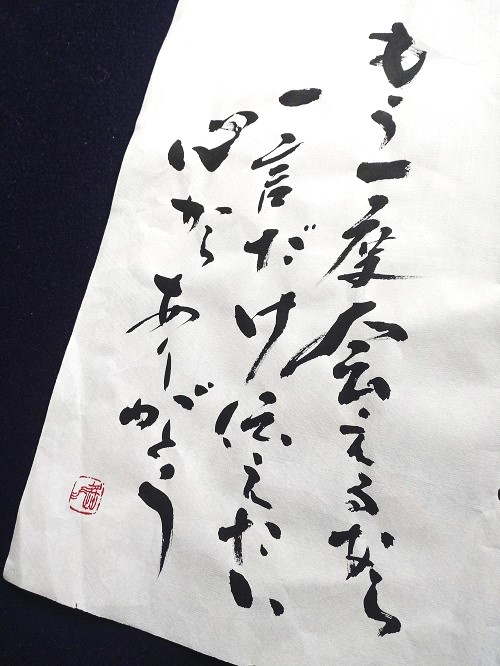 もう一度会えるなら
一言だけ伝えたい
心から ありがとう